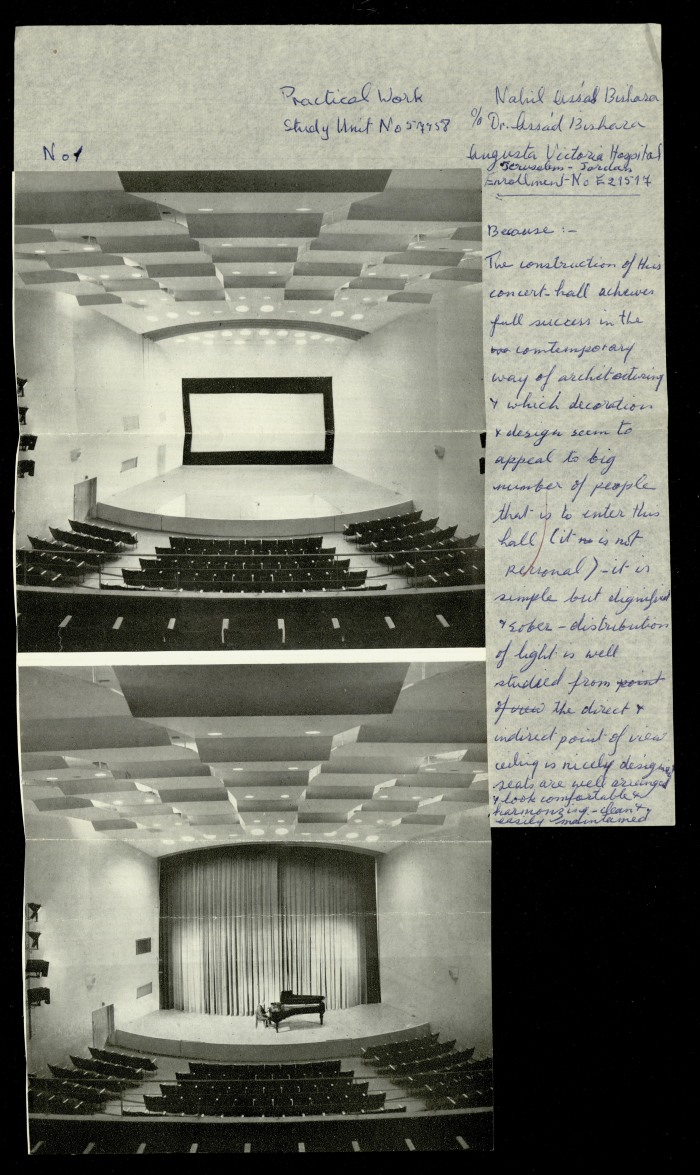 Practical Work
Study Unit No 57458
No 1
Nabil Assád Bishara
c/o Dr. Assád Bishara
Augusta Victoria Hospital
Jerusalem - Jordan
Enrollment-No E21517
Because :-
The construction of this
concert-hall achieves
full success in the
comtemporary
way of architecturing
& which decoration
& design seem to
appeal to big
number of people
that is to enter this
hall (it is not
personal) - it is
simple but dignified
& sober - distribution
of light is well
studied from point
of view the direct &
indirect point of view
ceiling is nicely designed
seats are well arranged
& look comfortable &
harmonzing - clean &
easily maintained